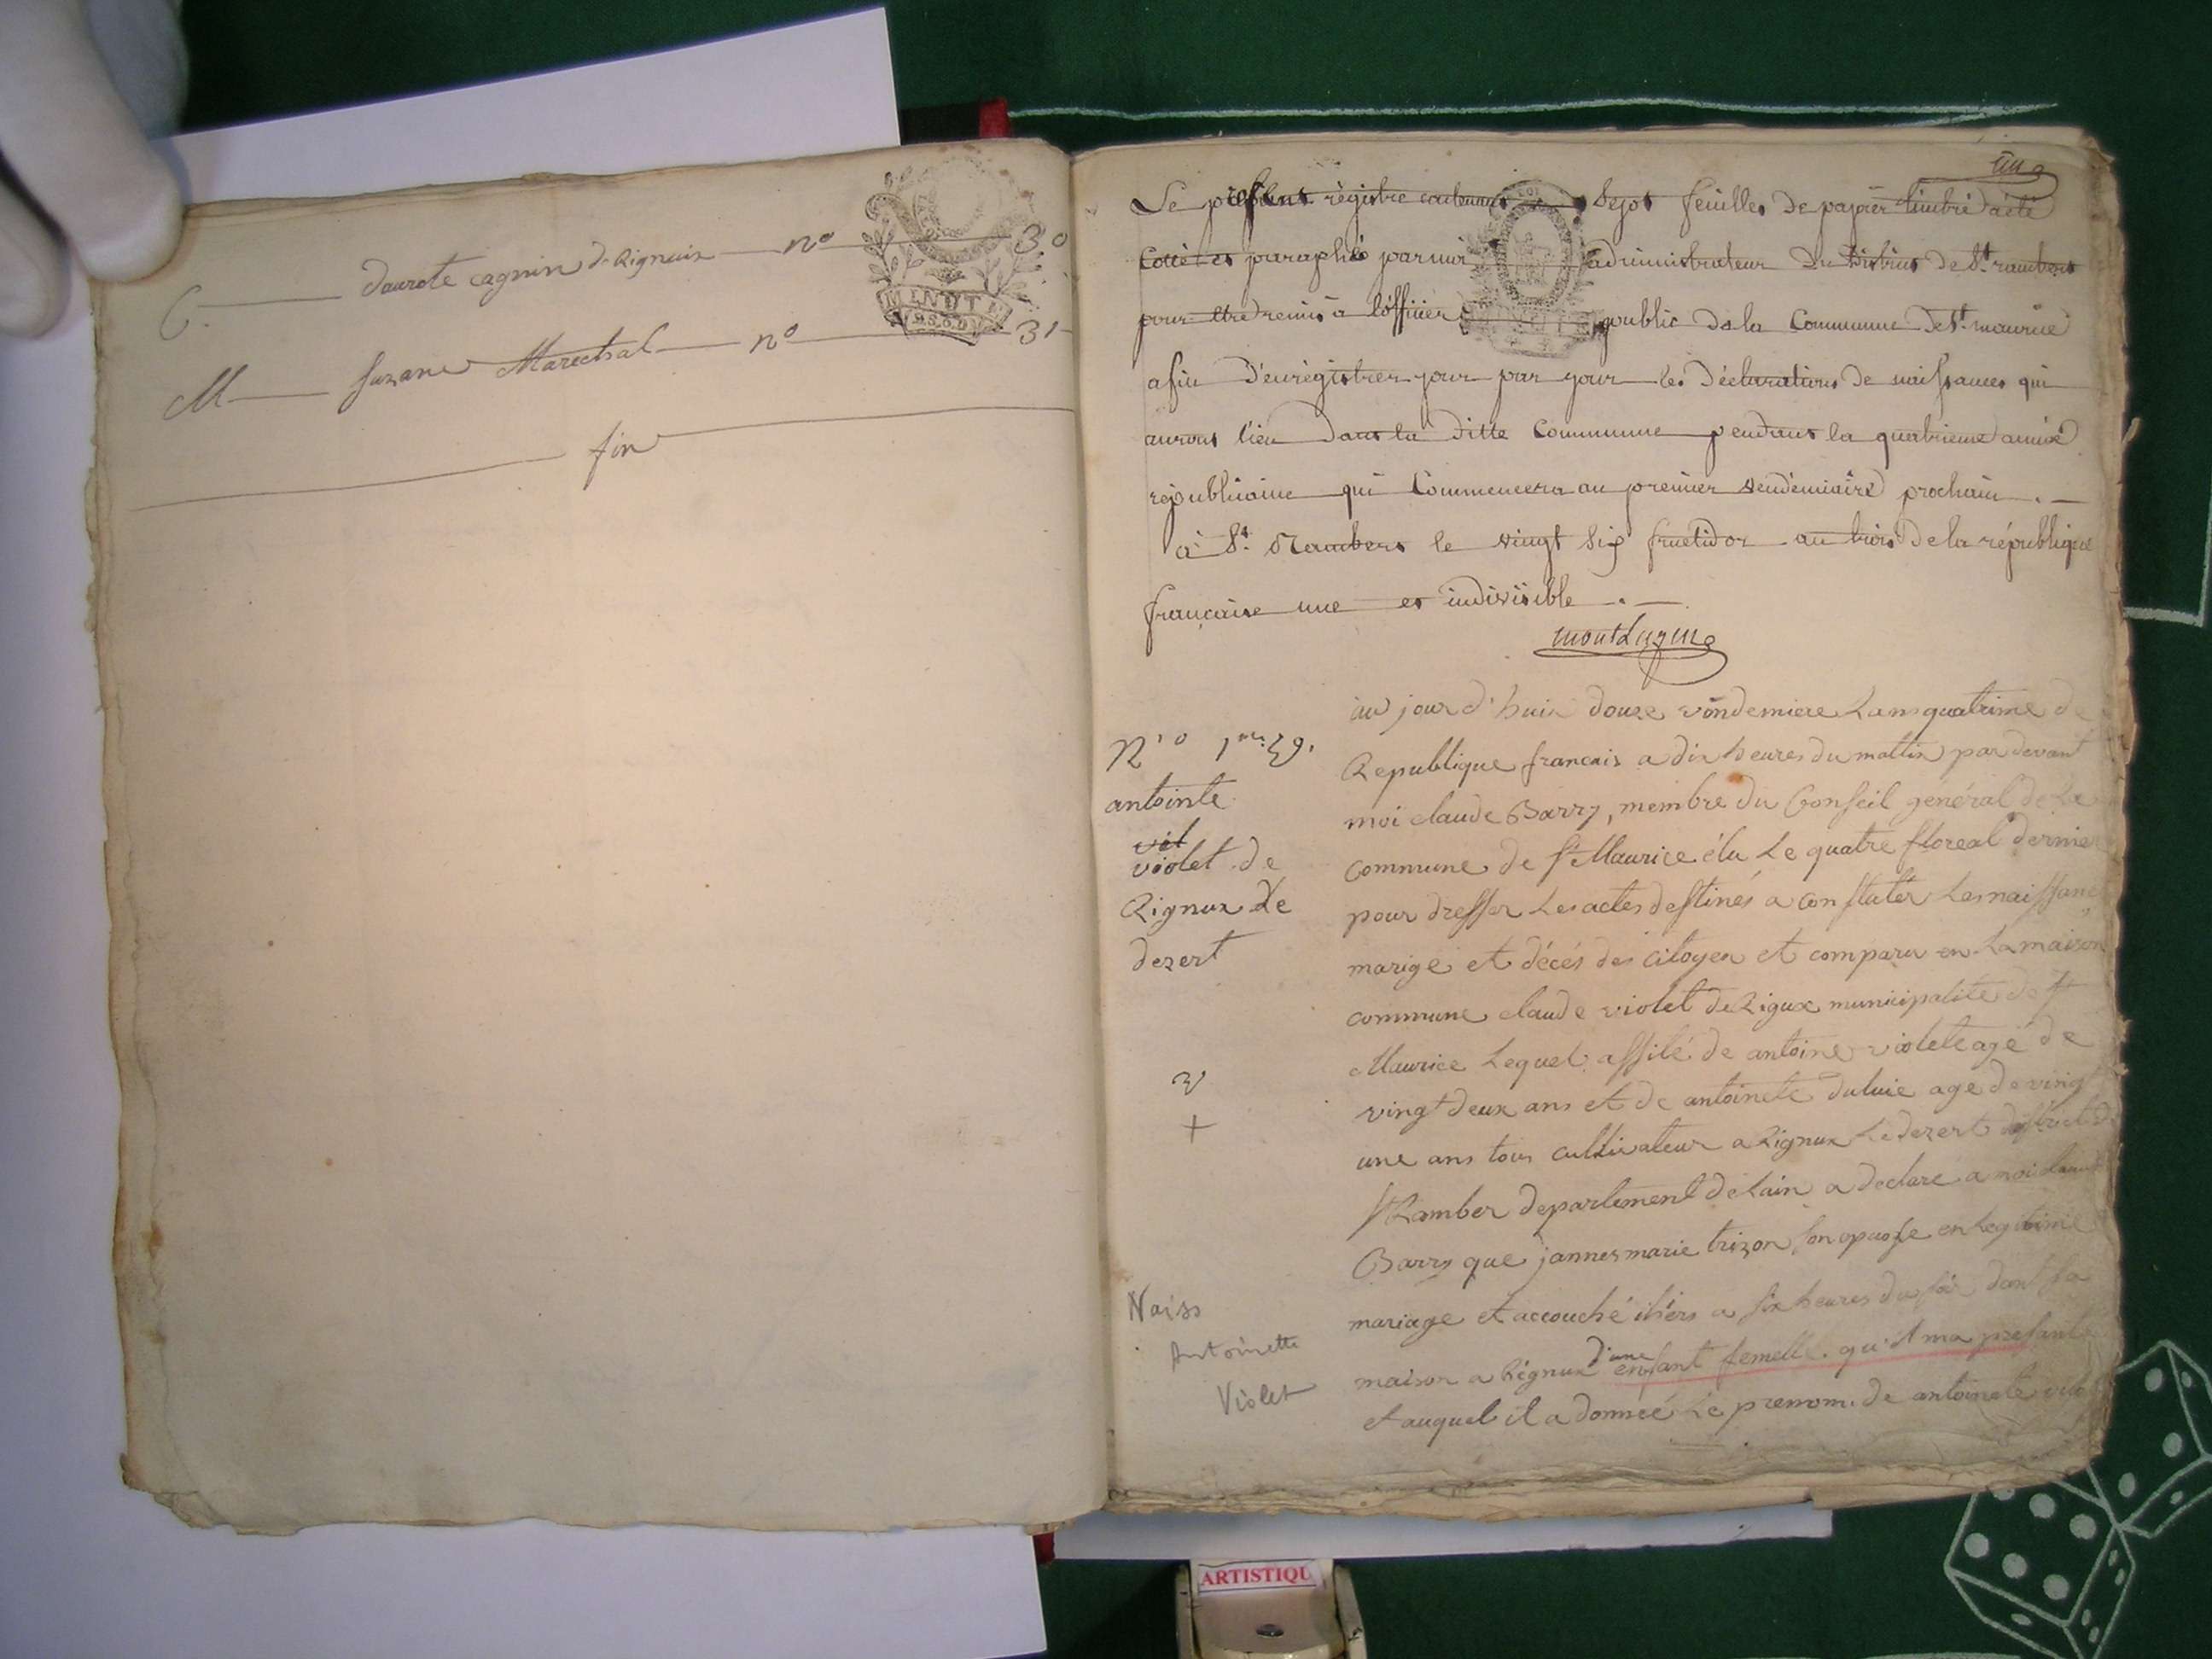 C. dourote cagnin de Rignuix n° 30
MINUTE
M suzane Marechal n° 31
fin
un
Le présent régistre contenant sept feuilles de papier timbré a été
Cotté et paraphé par moi administrateur du District de St. rambert
pour être remis à l'officier public de la Commune de St. maurice
afin d'enrégistrer jour par jour les déclarations de naissances qui
auront lieu dans la ditte Commune pendant la quatrieme année
républicaine qui Commencera au premier vendémiaire prochain . —
à St. Rambert le vingt six fructidor an trois de la république
française une et indivisible . —
montluzin
au jour d'huix douze vondemiere Lans quatrime de
Republique francais a dix heures du mattin par devant
moi claude Barry, membre du Conseil genéral de La
commune de St Maurice élu Le quatre floreal dernie
pour dresser Les actes destinés a constater Les naissanc
marige et décés des citoyen et comparu en La maison
commune claude violet de Rigux municipalité de St
Maurice Lequel assité de antoine violete agé de
vingt deux ans et de antoinete age de vingt
une ans tous cultivateur a Rignux Le dezert district de
St Ramber departement de Lain a declare a moi claude
Barry que jannes marie trizon son opuose en Legitime
mariage et accouché ihiers a six heures du soir dant sa
maison a Rignux d'une enfant femelle. qu'il ma presanté
et auquel il a donnéé Le prenom. de antoinete
N°
antointe
vil
violet de
Rignux Le
dezert
+
Naiss
Antoinette
Violet
ARTISTIQU